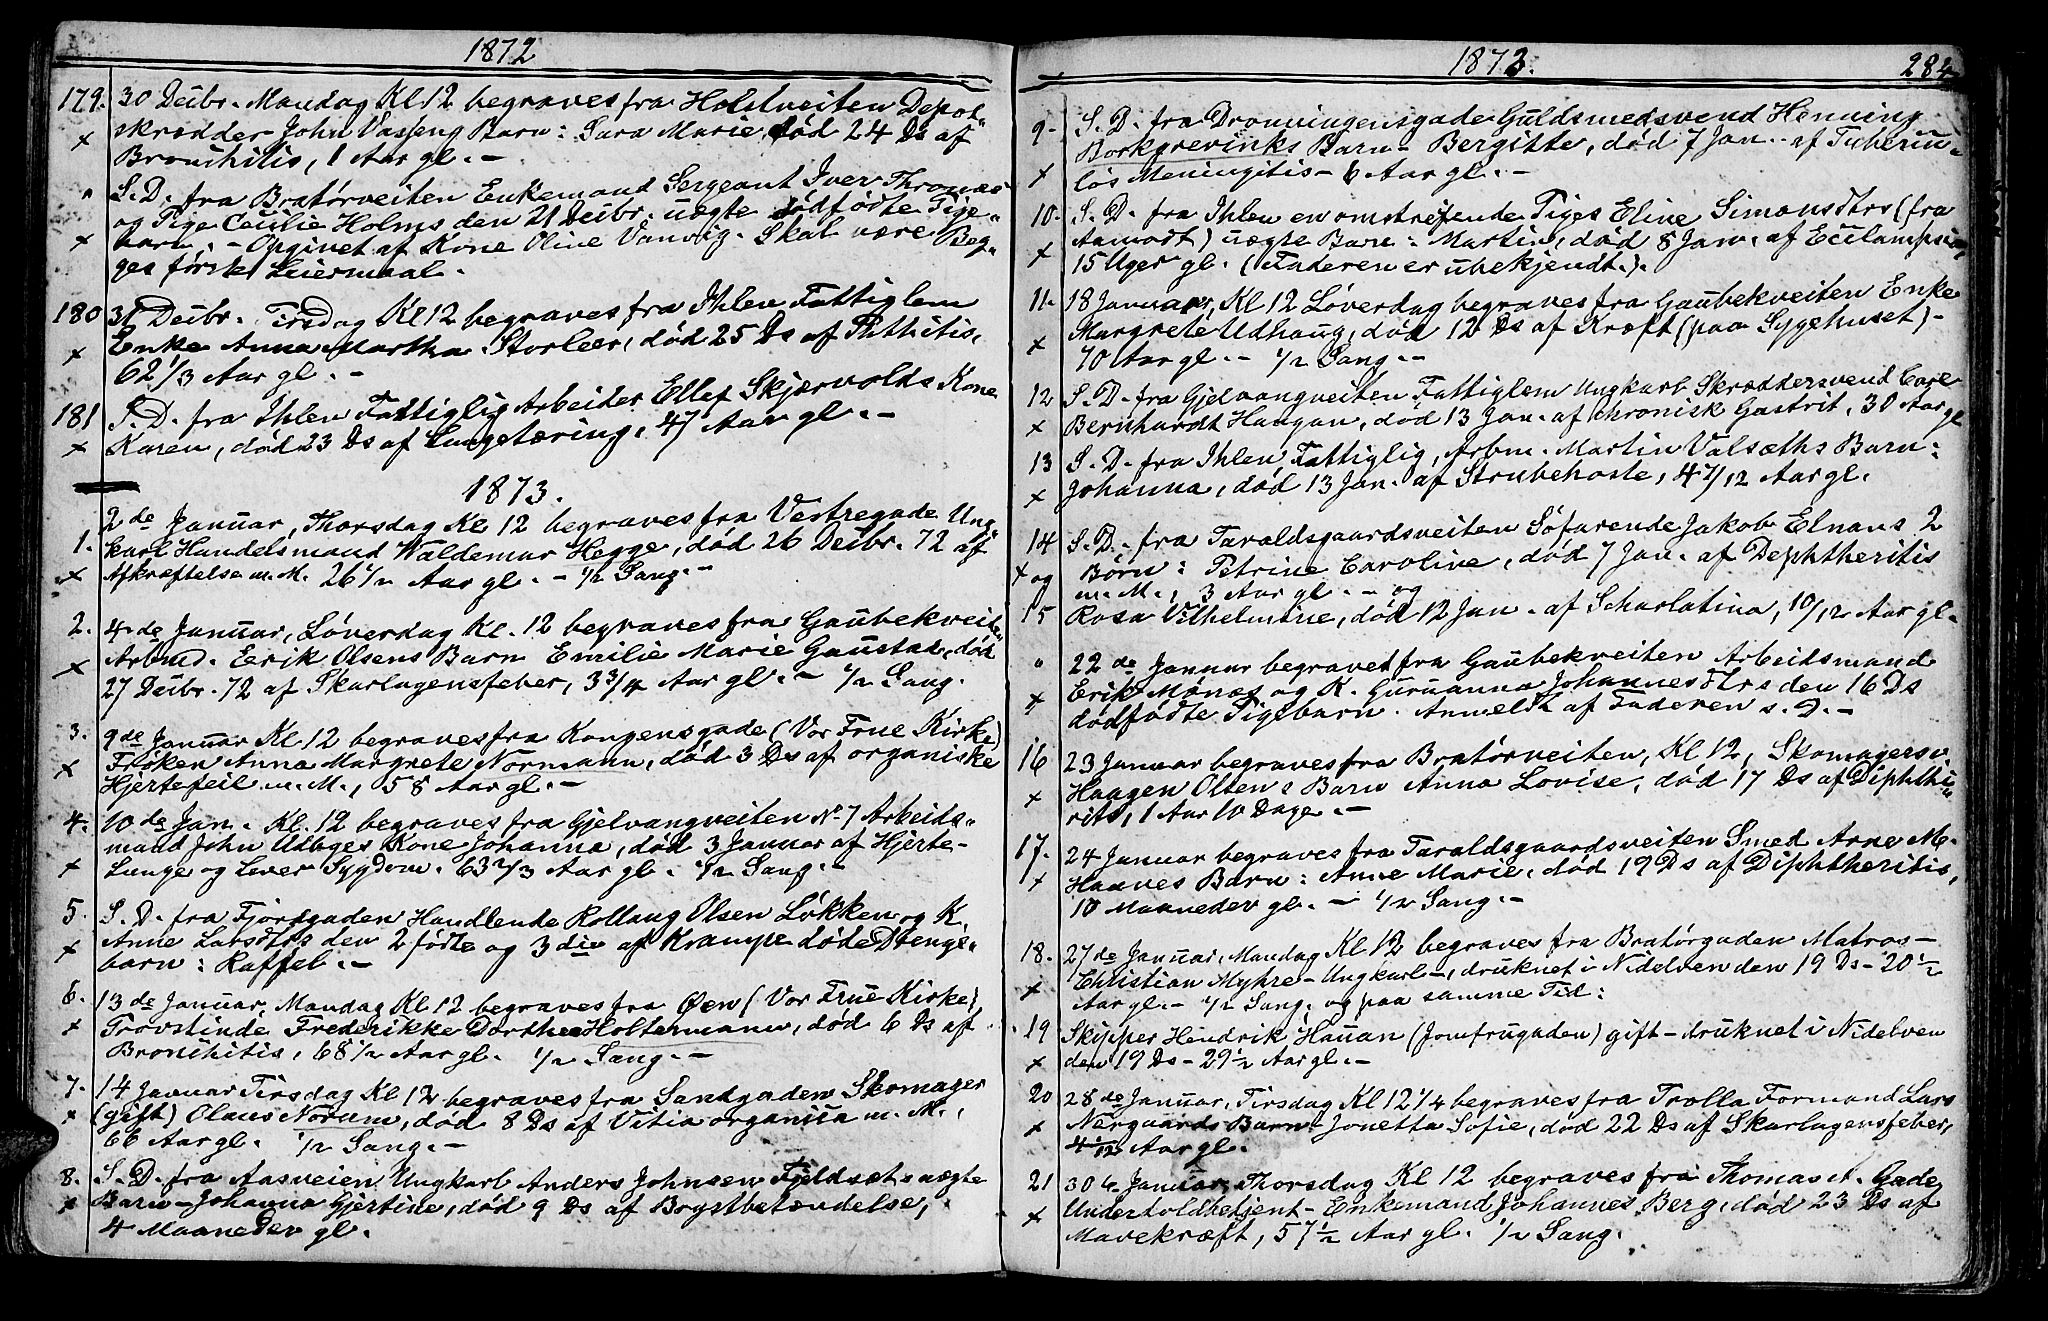 1872
179. 30 Decbr. Mandag Kl 12 begraves fra Holstveiten Depot-
skrædder John Vasseng Barn: Sara Marie, død 24 Ds af
x Bronchitis, 1 Aar gl. -
" S. D. fra Bratørveiten Enkemand Sergeant Iver Thronæs
og Pige Cecilie Holms den 21 Decbr. uægte dødfødte Pige-
x barn. - Opgivet af Kone Oline Vanvig. Skal være Beg-
ges første Leiermaal.
180 31 Decbr. Tirsdag Kl 12 begraves fra Ihlen Fattiglem
x Enke Anna Martha Storleer, død 25 Ds af Phthitis,
62 1/3 Aar gl. -
181 S. D. fra Ihlen Fattiglig Arbeider Ellef Skjærvolds Kone
x Karen, død 23 Ds af Lungetæring, 47 Aar gl. -
1873.
2de Januar, Thorsdag Kl 12 begraves fra Vestregade Ung-
1. karl Handelsmand Waldemar Hegge, død 26 Decbr. 72 af
x Afkræftelse m. M. 26 1/2 Aar gl. - 1/2 Sang. -
2. 4de Januar, Løverdag Kl. 12 begraves fra Gaubekveiten
x Arbmd. Erik Olsens Barn Emilie Marie Gaustad, død
27 Decbr. 72 af Skarlagensfeber, 3 3/4 Aar gl. - 1/2 Sang.
3. 9de Januar Kl 12 begraves fra Kongensgade (Vor Frue Kirke)
x Frøken Anna Margrete Normann, død 3 Ds af organiske
Hjertefeil m. M., 58 Aar gl. -
4. 10de Jan. Kl. 12 begraves fra Gjelvangveiten No 7 Arbeids-
mand John Udbyes Kone Johanna, død 3 Januar af Hjerte-
x Lunge og Lever Sygdom. 63 2/3 Aar gl. 1/2 Sang. -
5. S. D. fra Fjordgaden Handlende Rollaug Olsen Løkken og K.
x Anne Larsdtrs den 2 fødte og 3die af Krampe døde Drenge-
barn: Raffel. -
6. 13de Januar, Mandag Kl 12 begraves fra Øen (Vor Frue Kirke)
x Provstinde Frederikke Dorthea Holtermann, død 6 Ds af
Bronchitis, 68 1/2 Aar gl. 1/2 Sang. -
7. 14 Januar Tirsdag Kl 12 begraves fra Sandgaden Skomager
x (gift) Olaus Norum, død 8 Ds af Vitia organica m. M.,
66 Aar gl. 1/2 Sang. -
8. S. D. fra Aasveien Ungkarl Anders Johnsen Fjeldsets uægte
x Barn - Johanna Gjertine, død 9 Ds af Brystbetændelse,
4 Maaneder gl.
1873.
284
9. S. D. fra Dronningensgade Guldsmedsvend Henning
Borkgrevinks Barn - Bergitte, død 7 Jan. af Tubercu-
x løs Meningitis - 6 Aar gl. -
10. S. D. fra Ihlen en omstreifende Piges Eline Simonsdtrs (fra
x Aamodt) uægte Barn: Martin, død 8 Jan. af Ecclampsi,
15 Uger gl. (Faderen er ubekjendt.).
11. 18 Januar, Kl 12 Løverdag begraves fra Gaubekveiten Enke
x Margrete Udhaug, død 12 Ds af Kræft (paa Sygehuset) -
70 Aar gl. - 1/2 Sang. -
12 S. D. fra Gjelvangveiten Fattiglem Ungkarl Skræddersvend Carl
x Bernhardt Haugan, død 13 Jan. af chronisk Gastrit, 30 Aar gl
13 S. D. fra Ihlen Fattiglig, Arbm. Martin Valsæths Barn:
x Johanna, død 13 Jan. af Strubehoste, 4 7/12 Aar gl.
14 S. D. - fra Taraldsgaardsveiten Søfarende Jakob Elnans 2
x og Børn: Petrine Caroline, død 7 Jan. af Dephtheritis
m. M., 3 Aar gl. - og
15 Rosa Vilhelmine, død 12 Jan. af Scharlatina, 10/12 Aar gl.
" 22de Januar begravet fra Gaubekveiten Arbeidsmand
x Erik Mønæs og K. Guruanna Johannesdtrs den 16 Ds
dødfødte Pigebarn. Anmeldt af Faderen s. D. -
16 23 Januar begraves fra Bratørveiten, Kl 12, Skomagersv.
x Haagen Olsens Barn Anna Lovise, død 17 Ds af Diphthe-
ritis, 1 Aar 10 Dage. -
17. 24 Januar begraves fra Taraldsgaardsveiten Smed Arne M.
x Haaves Barn: Anne Marie, død 19 Ds af Diphtheritis,
10 Maaneder gl. - 1/2 Sang. -
18. 27de Januar, Mandag Kl 12 begraves fra Bratørgaden Matros -
x Christian Myhre - Ungkarl -, druknet i Nidelven den 19 Ds - 20 1/2
Aar gl. - 1/2 Sang. og paa samme Tid:
19 Skipper Hendrik Hauan (Jomfrugaden) gift - druknet i Nidelven
x den 19 Ds - 29 1/2 Aar gl. -
20 28de Januar, Tirsdag Kl 12 1/4 begraves fra Trolla Formand Lars
x Nergaards Barn - Jonetta Sofie, død 22 Ds af Skarlagensfeber,
4 1/12 Aar gl.
21 30te Januar, Thorsdag Kl 12 begraves fra Thomas A. Gade
x Undertoldbetjent - Enkemand Johannes Berg, død 23 Ds af
Mavekræft, 57 1/2 Aar gl. 1/2 Sang.